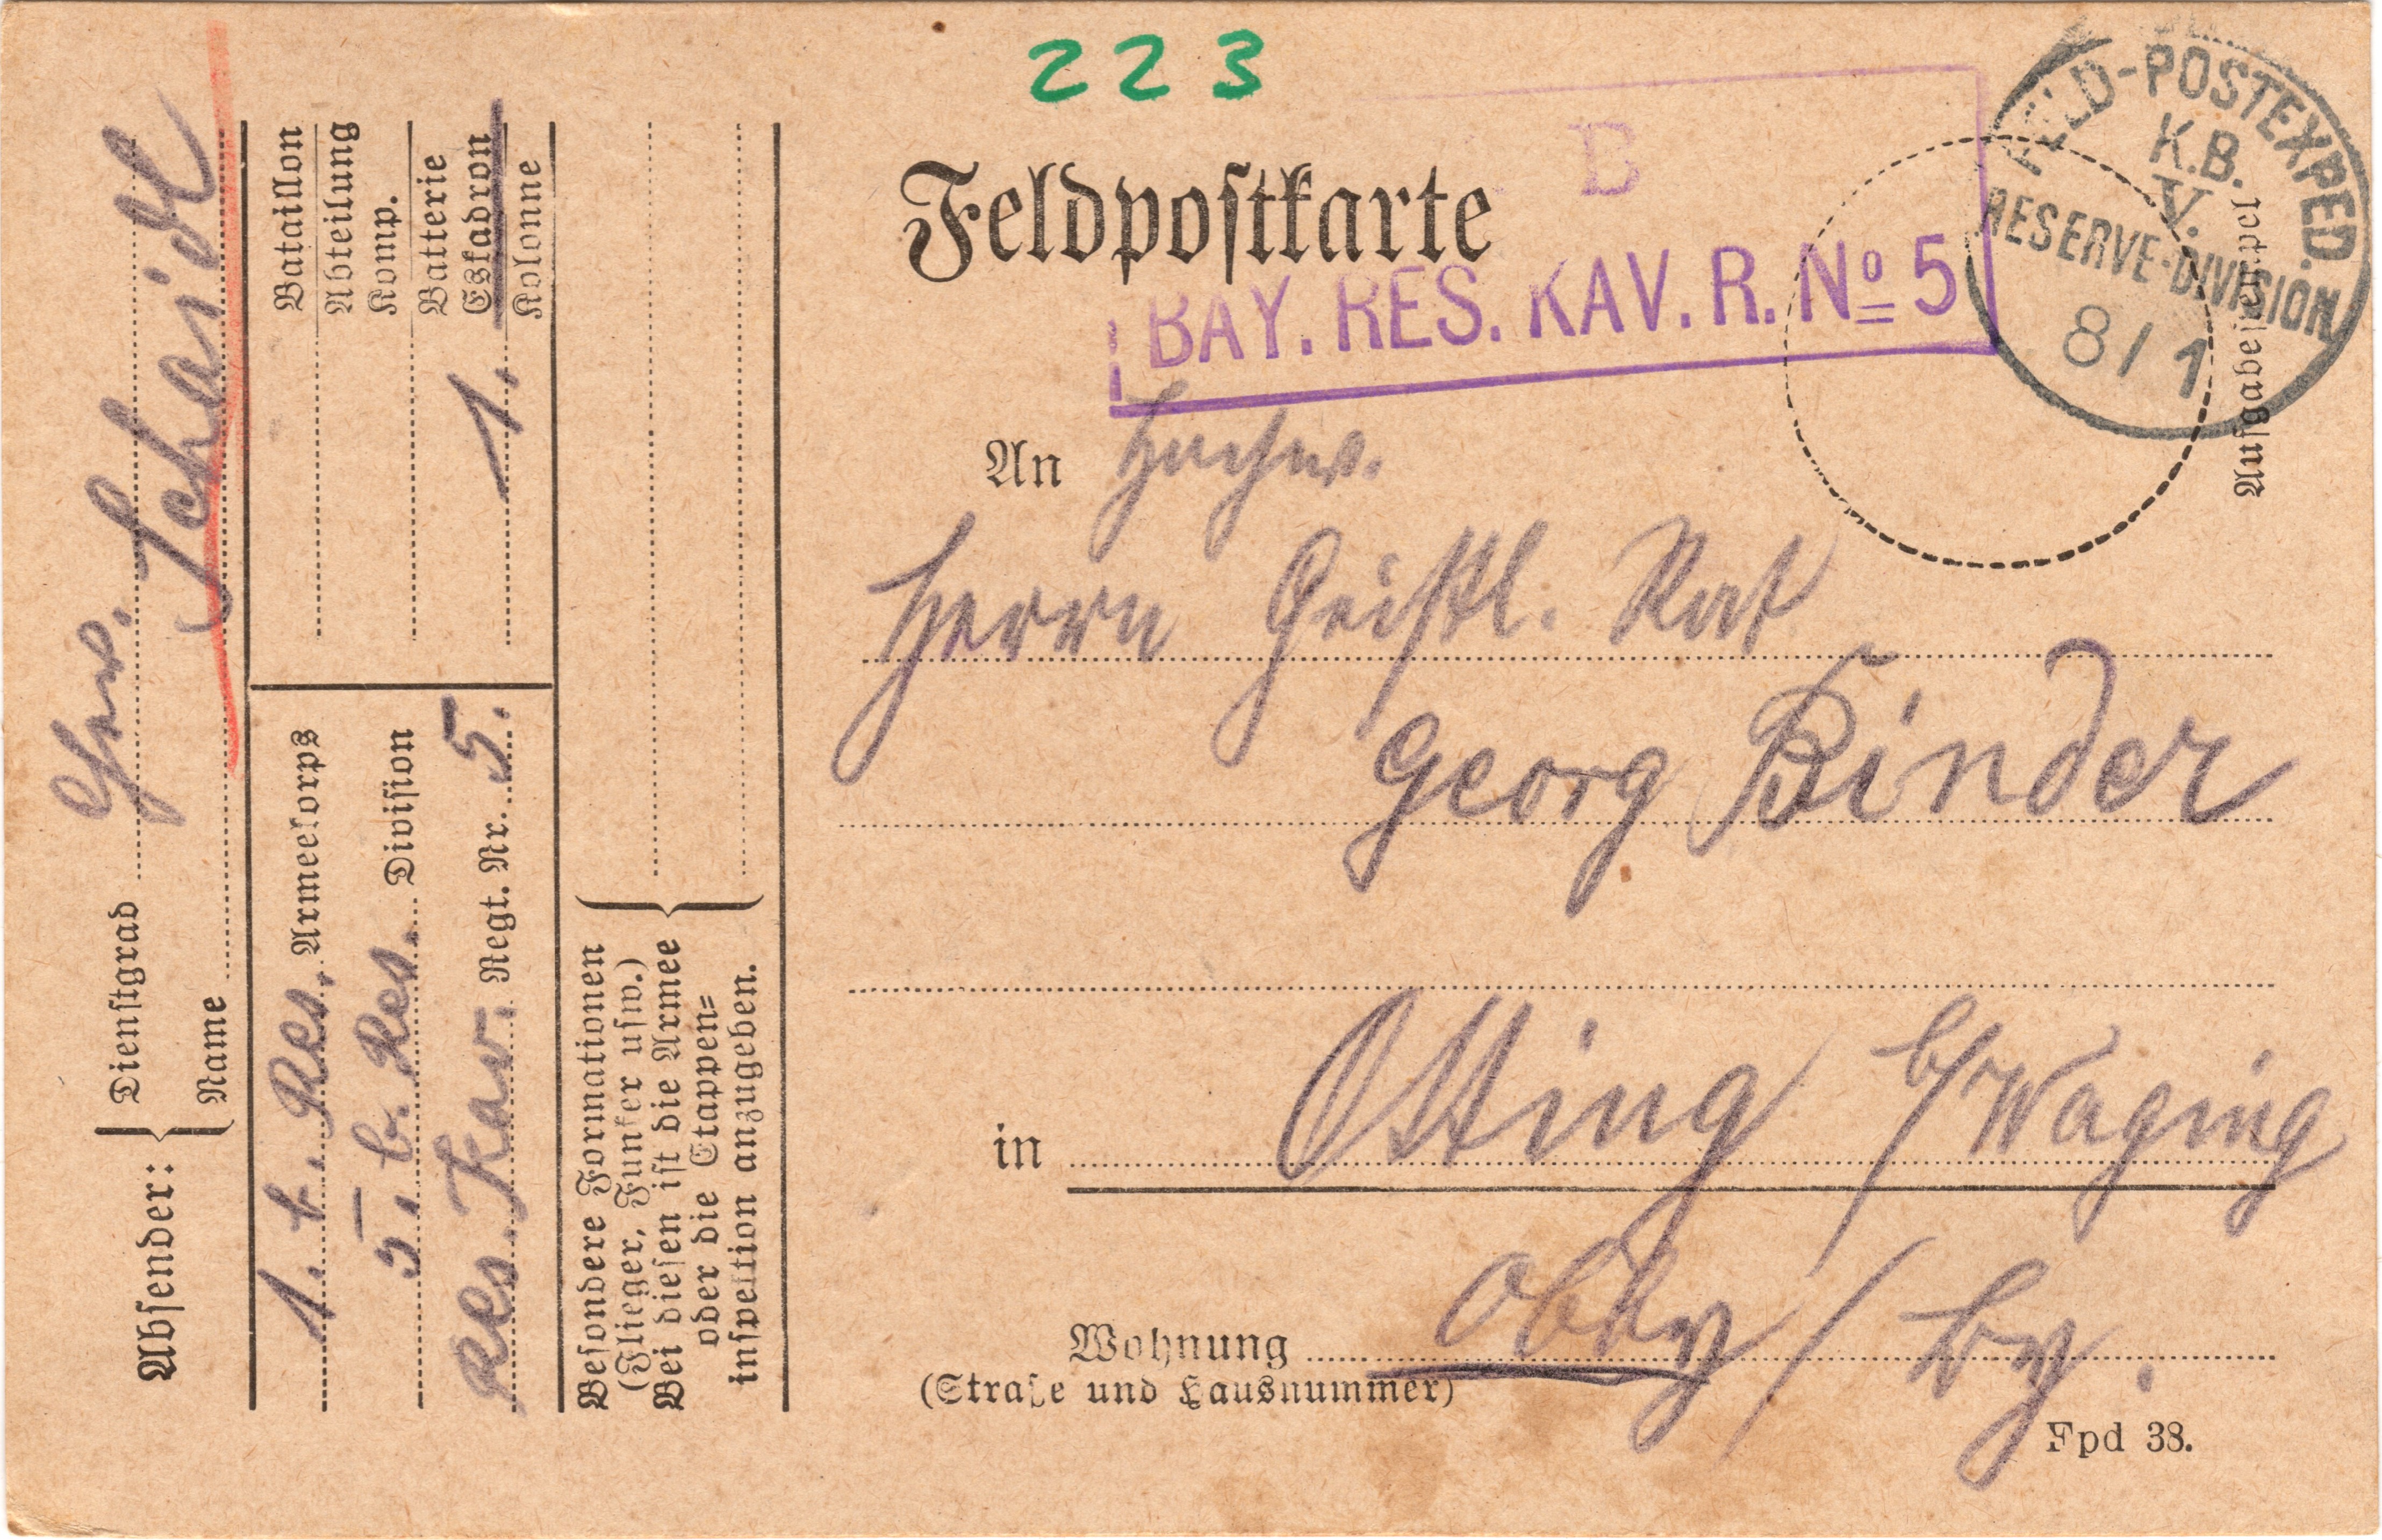 223
Feldpostkarte
B
BAY. RES. KAV. R. No 5
FELD-POSTEXPED.
K.B.
V.
RESERVE-DIVISION
8/1
Aufgabestempel
An Hochw.
Herrn Geistl. Rat
Georg Binder
in Otting b/Waging
Obby / by.
Wohnung
(Straße und Hausnummer)
Fpd 38.
Absender:
Dienstgrad Gev.
Name Scheidl
1. b. Res. Armeekorps
5. b. Res. Division
Res. Kav. Regt. Nr. 5.
Bataillon
Abteilung
Komp.
Batterie
Eskadron 1.
Kolonne
Besondere Formationen
(Flieger, Funker usw.)
Bei diesen ist die Armee
oder die Etappen=
inspektion anzugeben.